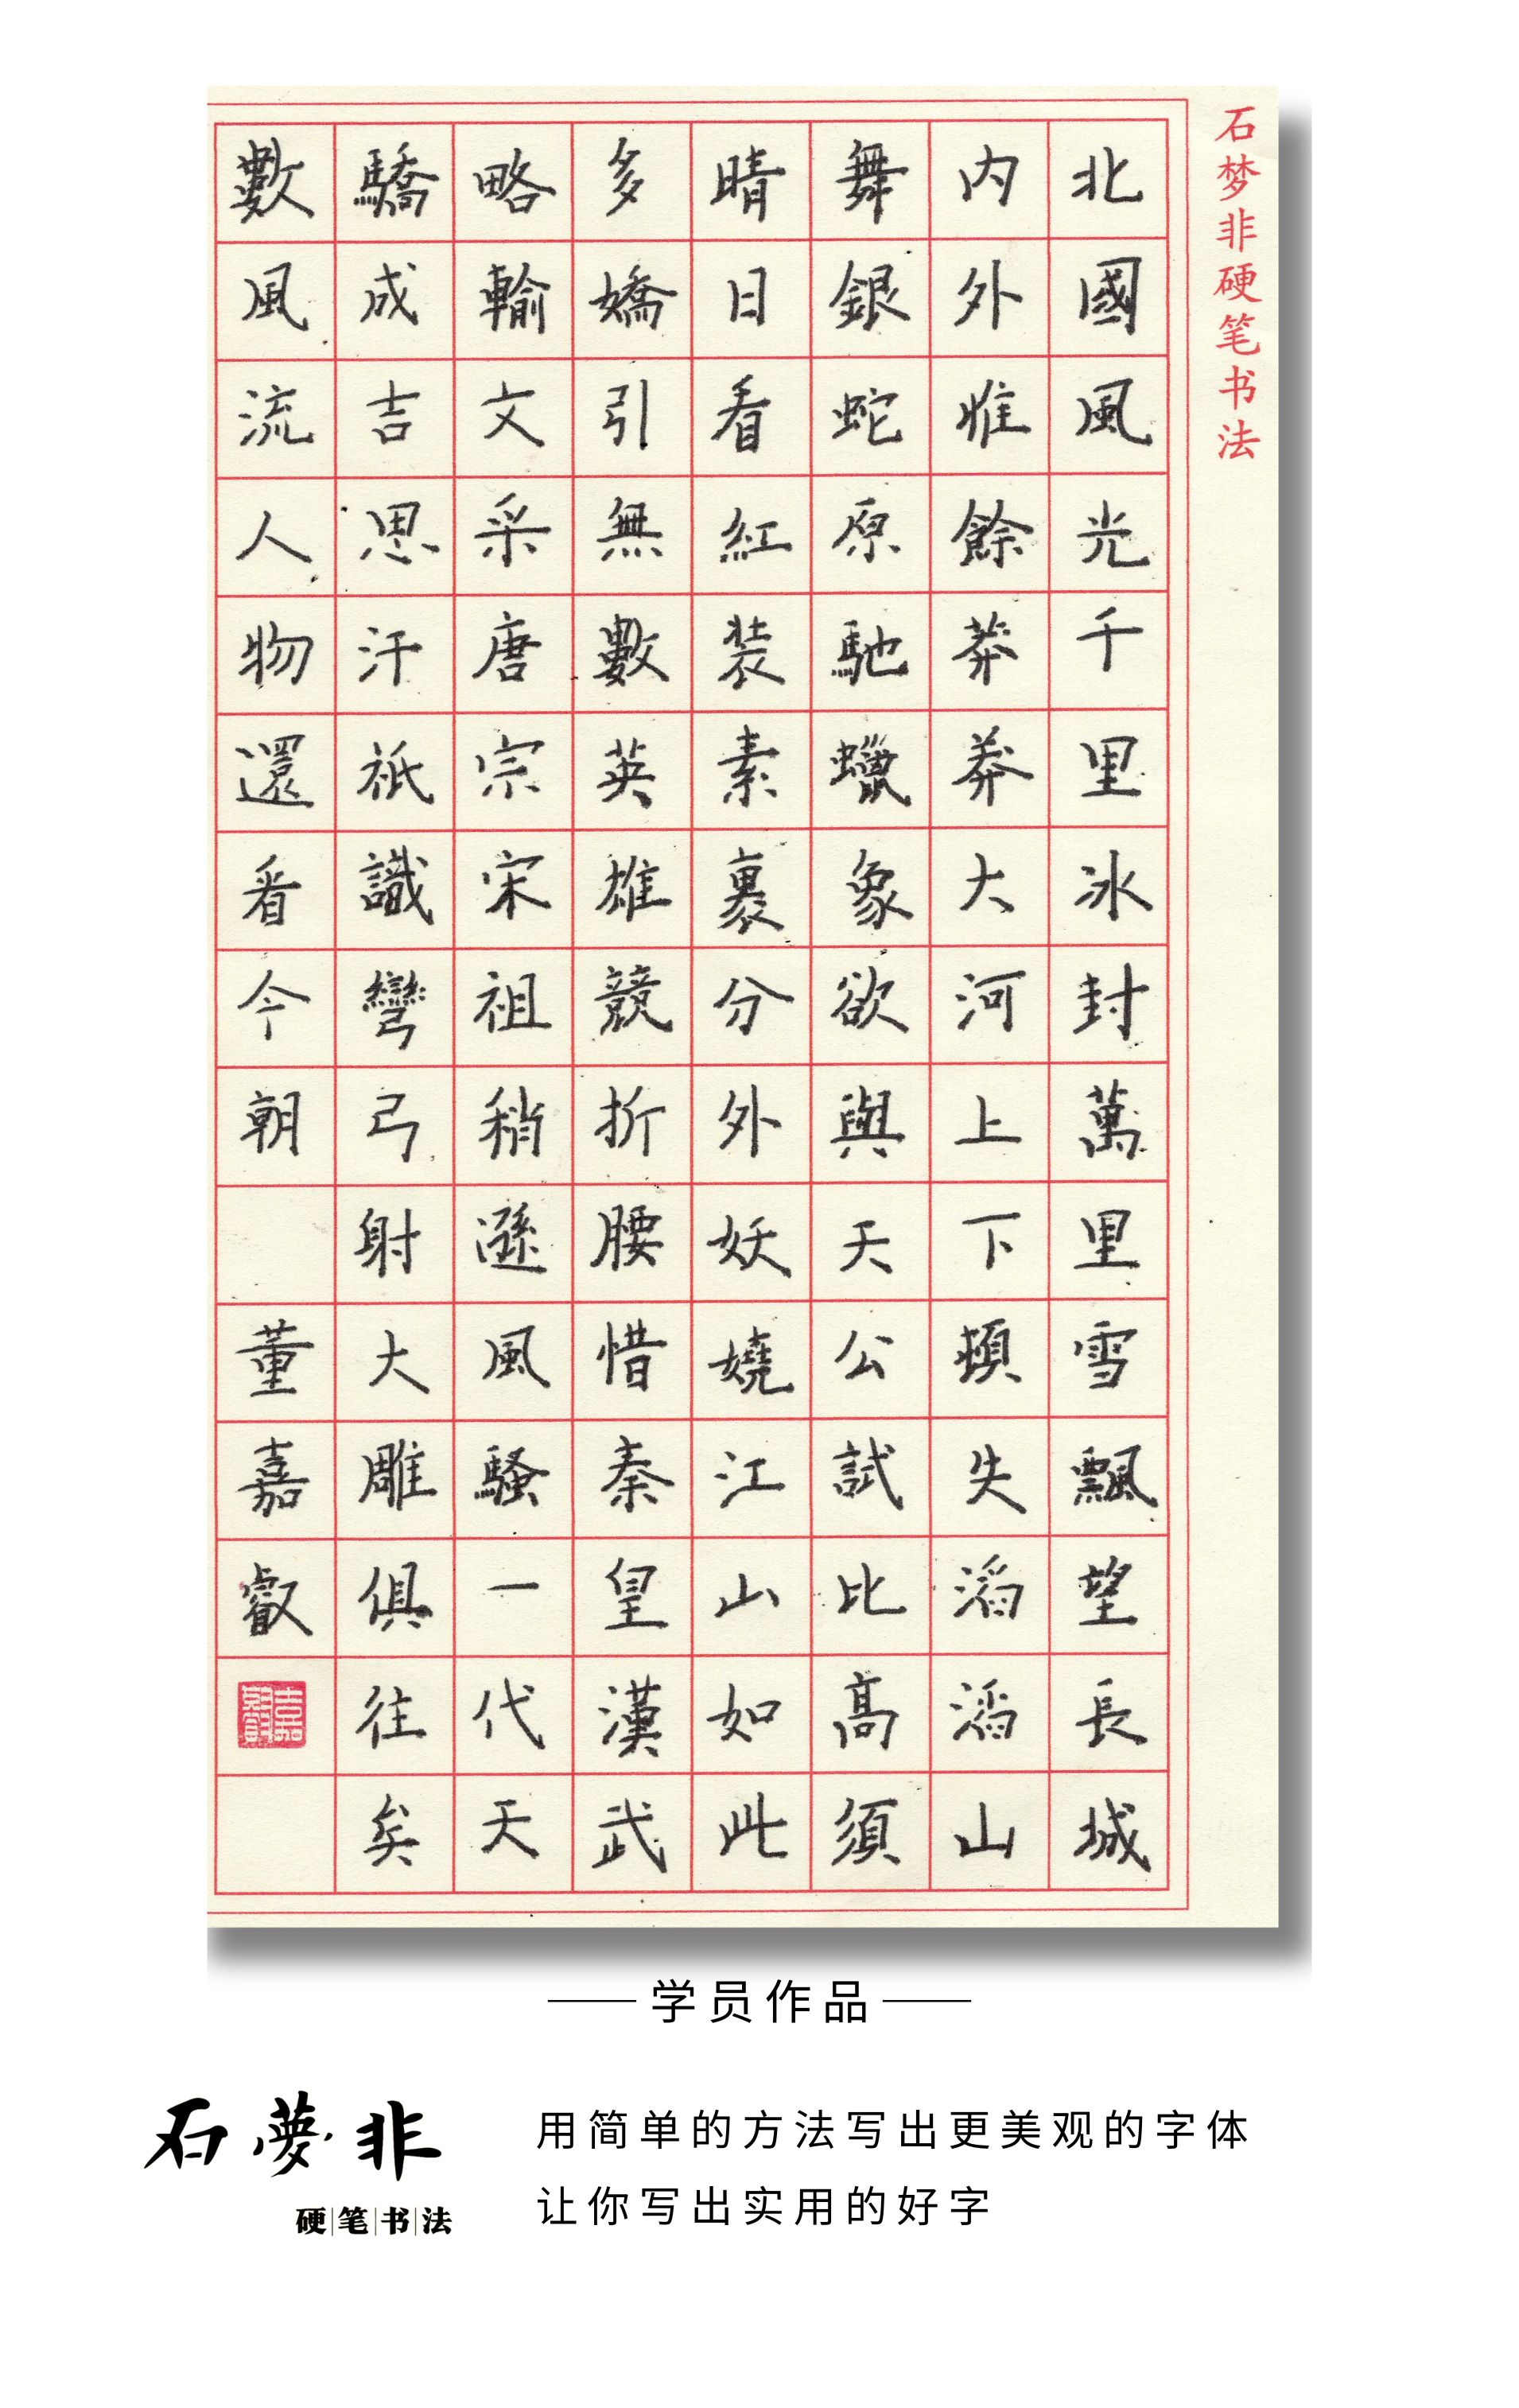 石梦非硬笔书法
北國風光千里冰封萬里雪飄望長城
内外惟餘莽莽大河上下頓失滔滔山
舞銀蛇原馳蠟象欲與天公試比高須
晴日看紅装素裹分外妖嬈江山如此
多嬌引無數英雄競折腰惜秦皇漢武
略輸文采唐宗宋祖稍遜風騷一代天
驕成吉思汗祇識彎弓射大雕俱往矣
數風流人物還看今朝 董嘉叡
学员作品
石夢非
硬笔书法
用简单的方法写出更美观的字体
让你写出实用的好字